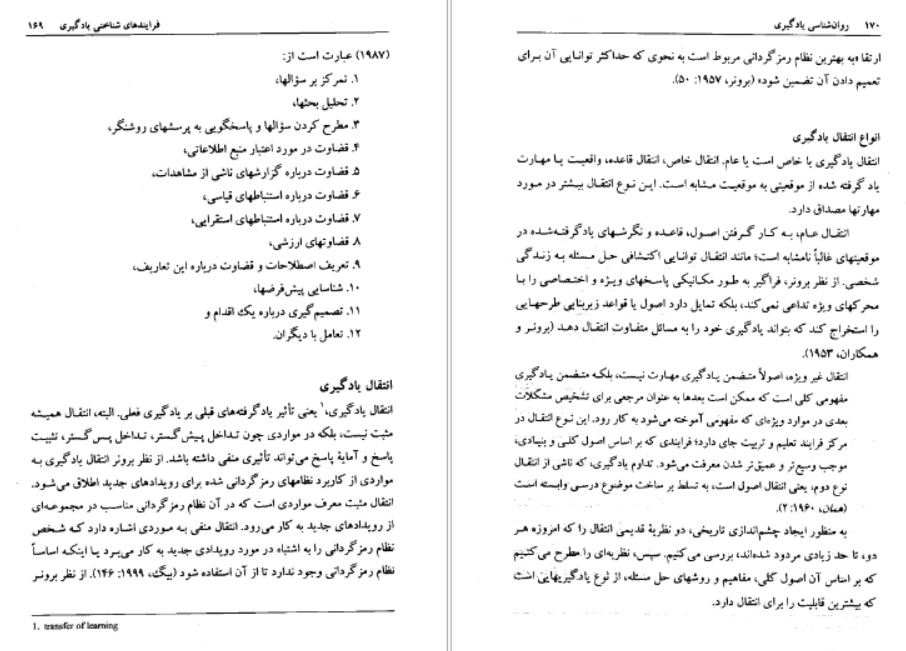 فرایندهای شناختی یادگیری ۱۶۹
(۱۹۸۷) عبارت است از:
۱. تمرکز بر سؤالها،
۲. تحلیل بحثها،
۳. مطرح کردن سؤالها و پاسخگویی به پرسشهای روشنگر،
۴. قضاوت در مورد اعتبار منبع اطلاعاتی،
۵. قضاوت درباره گزارشهای ناشی از مشاهدات،
۶. قضاوت درباره استنباطهای قیاسی،
۷. قضاوت درباره استنباطهای استقرایی،
۸. قضاوتهای ارزشی،
۹. تعریف اصطلاحات و قضاوت درباره این تعاریف،
۱۰. شناسایی پیش‌فرضها،
۱۱. تصمیم‌گیری درباره یک اقدام و
۱۲. تعامل با دیگران.
انتقال یادگیری
انتقال یادگیری،۱ یعنی تأثیر یادگرفته‌های قبلی بر یادگیری فعلی. البته، انتقال همیشه
مثبت نیست، بلکه در مواردی چون تداخل پیش‌گستر، تداخل پس‌گستر، تثبیت
پاسخ و آمایهٔ پاسخ می‌تواند تأثیری منفی داشته باشد. از نظر برونر انتقال یادگیری به
مواردی از کاربرد نظامهای رمزگردانی شده برای رویدادهای جدید اطلاق می‌شود.
انتقال مثبت معرف مواردی است که در آن نظام رمزگردانی مناسب در مجموعه‌ای
از رویدادهای جدید به کار می‌رود. انتقال منفی به موردی اشاره دارد که شخص
نظام رمزگردانی را به اشتباه در مورد رویدادی جدید به کار می‌برد یا اینکه اساساً
نظام رمزگردانی وجود ندارد تا از آن استفاده شود (بیگ، ۱۹۹۹: ۱۴۶). از نظر برونر
1. transfer of learning
۱۷۰ روان‌شناسی یادگیری
ارتقا «به بهترین نظام رمزگردانی مربوط است به نحوی که حداکثر توانایی آن برای
تعمیم دادن آن تضمین شود» (برونر، ۱۹۵۷: ۵۰).
انواع انتقال یادگیری
انتقال یادگیری یا خاص است یا عام. انتقال خاص، انتقال قاعده، واقعیت یا مهارت
یاد گرفته شده از موقعیتی به موقعیت مشابه است. این نوع انتقال بیشتر در مورد
مهارتها مصداق دارد.
انتقال عام، به کار گرفتن اصول، قاعده و نگرشهای یادگرفته‌شده در
موقعیتهای غالباً نامشابه است؛ مانند انتقال توانایی اکتشافی حل مسئله به زندگی
شخصی. از نظر برونر، فراگیر به طور مکانیکی پاسخهای ویژه و اختصاصی را با
محرکهای ویژه تداعی نمی‌کند، بلکه تمایل دارد اصول یا قواعد زیربنایی طرحهایی
را استخراج کند که بتواند یادگیری خود را به مسائل متفاوت انتقال دهد (برونر و
همکاران، ۱۹۵۳).
انتقال غیر ویژه، اصولاً متضمن یادگیری مهارت نیست، بلکه متضمن یادگیری
مفهومی کلی است که ممکن است بعدها به عنوان مرجعی برای تشخیص مشکلات
بعدی در موارد ویژه‌ای که مفهومی آموخته می‌شود به کار رود. این نوع انتقال در
مرکز فرایند تعلیم و تربیت جای دارد؛ فرایندی که بر اساس اصول کلی و بنیادی،
موجب وسیع‌تر و عمیق‌تر شدن معرفت می‌شود. تداوم یادگیری، که ناشی از انتقال
نوع دوم، یعنی انتقال اصول است، به تسلط بر ساخت موضوع درسی وابسته است
(همان، ۱۹۶۰: ۲).
به منظور ایجاد چشم‌اندازی تاریخی، دو نظریهٔ قدیمی انتقال را که امروزه هر
دو، تا حد زیادی مردود شده‌اند، بررسی می‌کنیم. سپس، نظریه‌ای را مطرح می‌کنیم
که بر اساس آن اصول کلی، مفاهیم و روشهای حل مسئله، از نوع یادگیریهایی است
که بیشترین قابلیت را برای انتقال دارد.